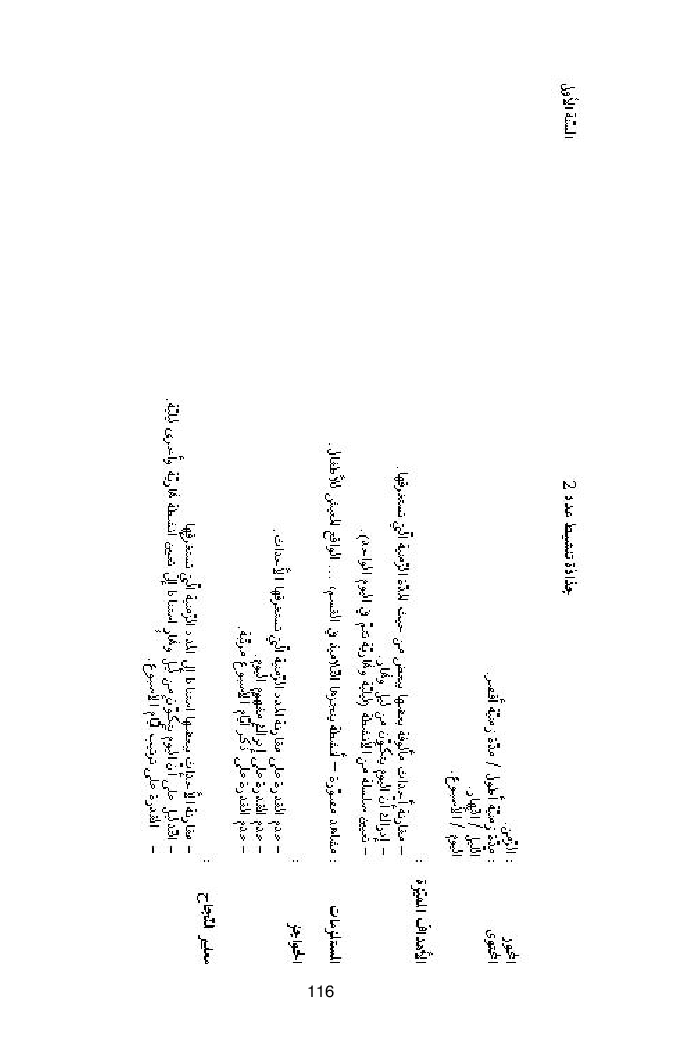 السّنة الأولى
جذاذة تنشيط عدد 2
المحور : الزّمن.
المحتوى : مدّة زمنيّة أطول / مدّة زمنيّة أقصر
اللّيل / النّهار
اليوم / الأسبوع.
الأهداف المميّزة :
– مقارنة أحداث مألوفة بعضها ببعض من حيث المدد الزّمنية الّتي تستغرقها.
– إدراك أنّ اليوم يتكوّن من ليل ونهار.
– تعيين سلسلة من الأنشطة ليليّة ونهاريّة تتمّ في اليوم الواحد.
المستلزمات : مشاهد مصوّرة – أنشطة ينجزها التّلاميذ في القسم، ... الواقع المعيش للأطفال.
الحواجز :
– عدم القدرة على مقارنة المدد الزّمنية الّتي تستغرقها الأحداث.
– عدم القدرة على إدراك مفهوم اليوم.
– عدم القدرة على ذكر أيّام الأسبوع مرتّبة.
معايير النّجاح :
– مقارنة الأحداث بعضها استنادا إلى المدد الزّمنية الّتي تستغرقها
– التّدليل على أنّ اليوم يتكوّن من ليل ونهار استنادا إلى تعيين أنشطة نهاريّة وأخرى ليليّة.
– القدرة على ترتيب أيّام الأسبوع.
116